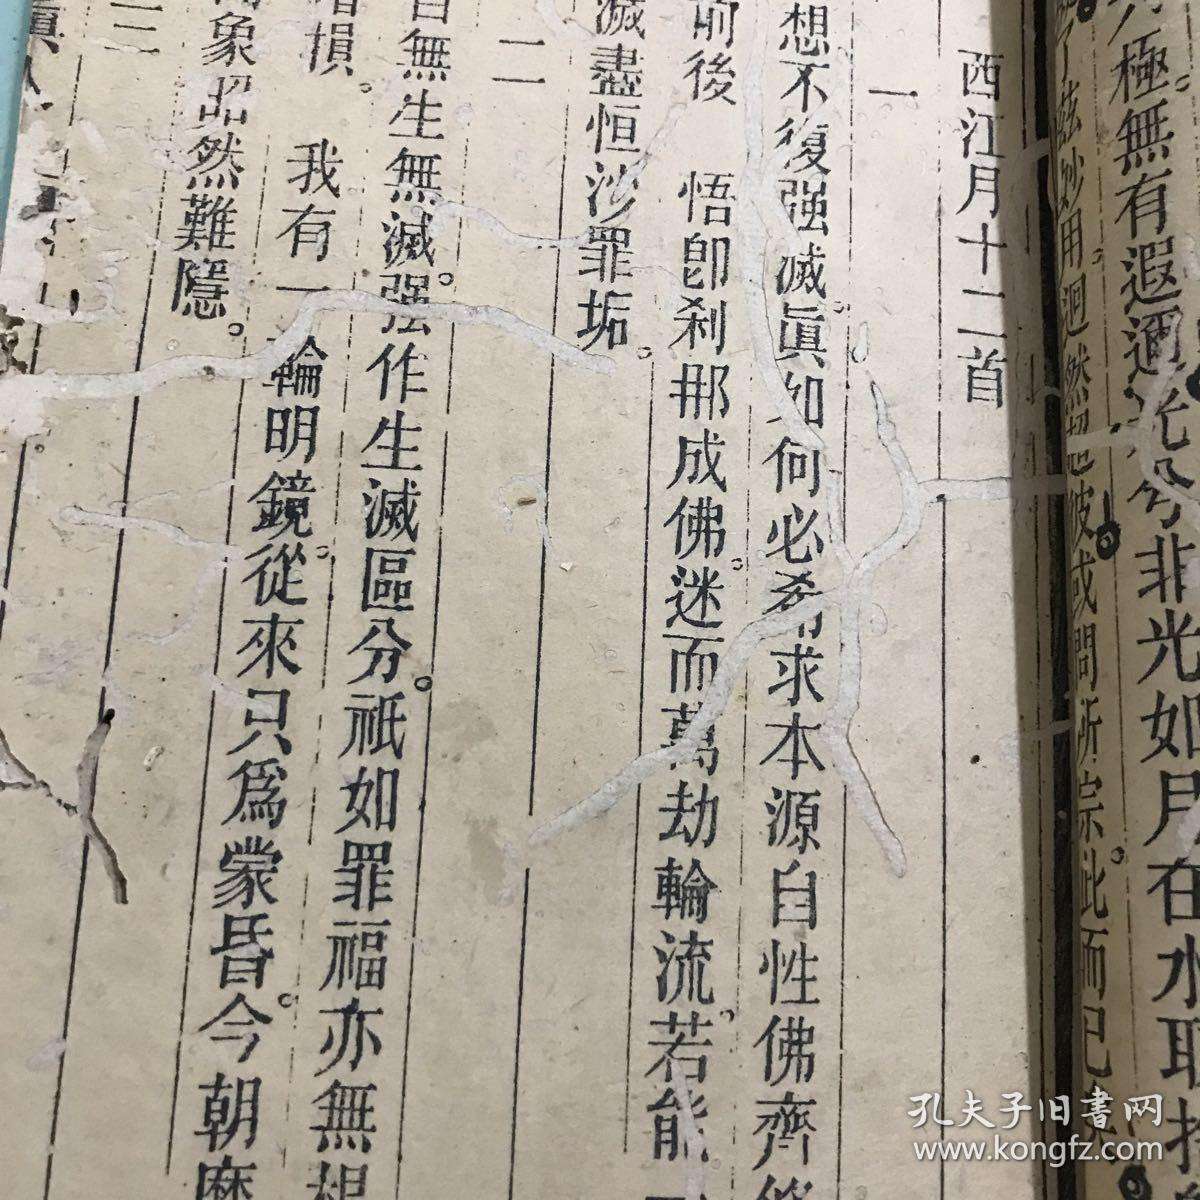 極無有遐邇光兮非光如月在水取
了兹妙用迥然超彼或問所宗此而已
西江月十二首
一
想不復强滅。眞如何必希求本源自性佛齊修
前後　悟卽刹那成佛。迷而萬劫輪流。若能
滅盡恒沙罪垢。
二
自無生無滅。强作生滅區分。祗如罪福亦無根
損。　我有一輪明鏡。從來只爲蒙昏。今朝磨
象昭然難隱。
三
孔夫子旧书网
www.kongfz.com